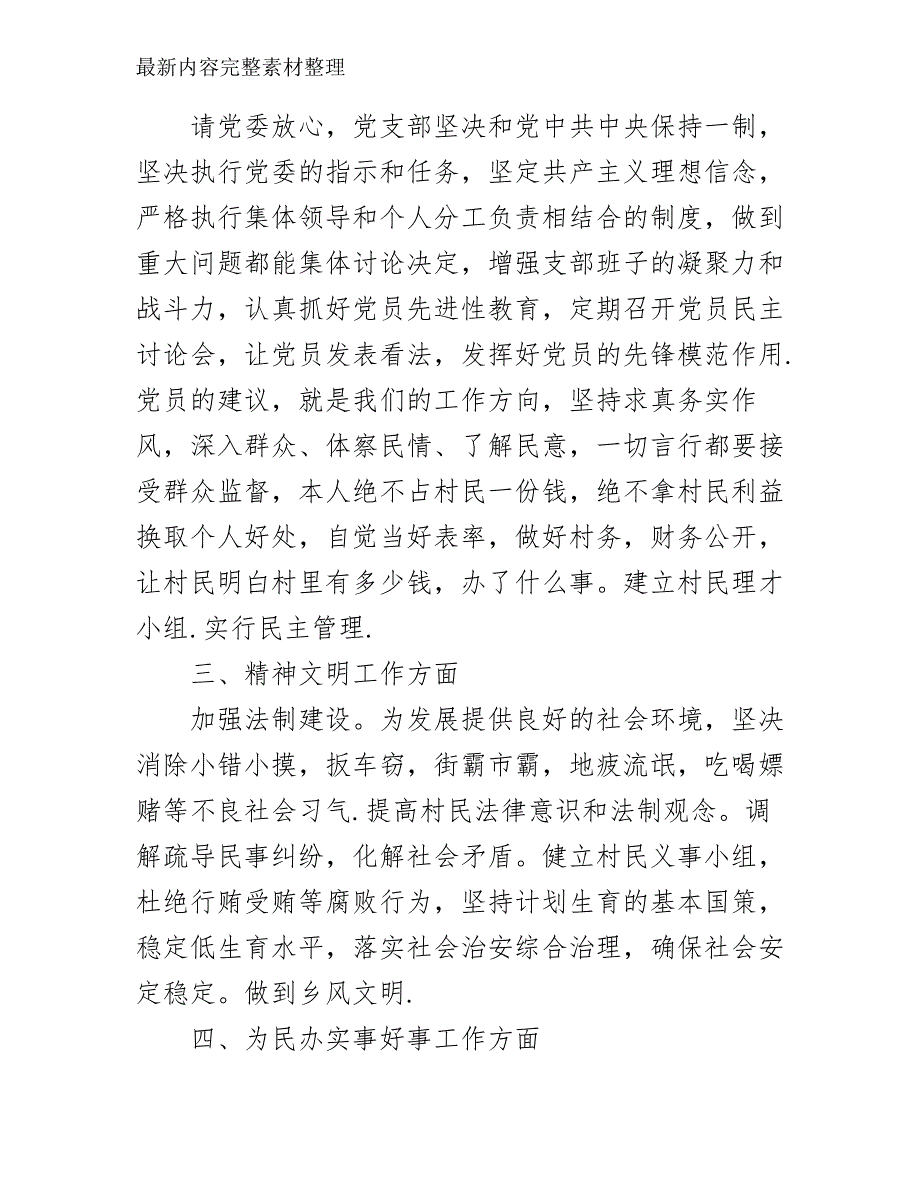 最新内容完整素材整理
请党委放心，党支部坚决和党中共中央保持一制，
坚决执行党委的指示和任务，坚定共产主义理想信念，
严格执行集体领导和个人分工负责相结合的制度，做到
重大问题都能集体讨论决定，增强支部班子的凝聚力和
战斗力，认真抓好党员先进性教育，定期召开党员民主
讨论会，让党员发表看法，发挥好党员的先锋模范作用.
党员的建议，就是我们的工作方向，坚持求真务实作
风，深入群众、体察民情、了解民意，一切言行都要接
受群众监督，本人绝不占村民一份钱，绝不拿村民利益
换取个人好处，自觉当好表率，做好村务，财务公开，
让村民明白村里有多少钱，办了什么事。建立村民理才
小组.实行民主管理.
三、精神文明工作方面
加强法制建设。为发展提供良好的社会环境，坚决
消除小错小摸，扳车窃，街霸市霸，地疲流氓，吃喝嫖
赌等不良社会习气.提高村民法律意识和法制观念。调
解疏导民事纠纷，化解社会矛盾。健立村民义事小组，
杜绝行贿受贿等腐败行为，坚持计划生育的基本国策，
稳定低生育水平，落实社会治安综合治理，确保社会安
定稳定。做到乡风文明.
四、为民办实事好事工作方面